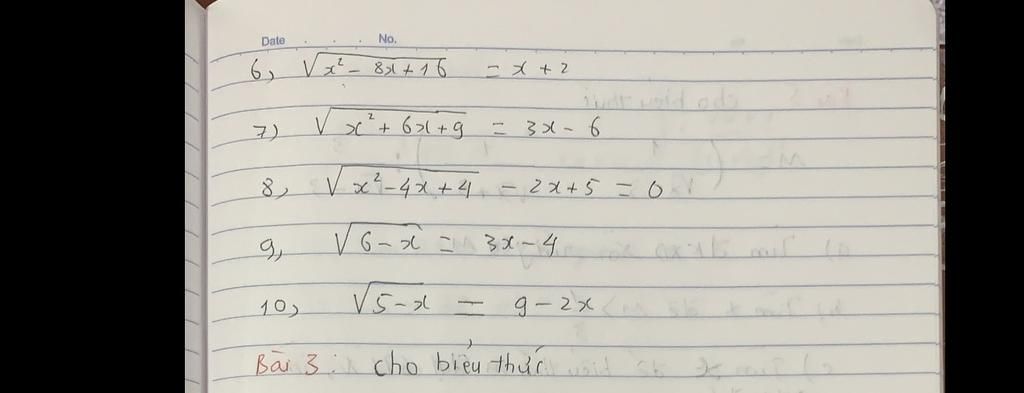 Date . . . No.
6, √(x² - 8x + 16) = x + 2
7) √(x² + 6x + 9) = 3x - 6
8, √(x² - 4x + 4) - 2x + 5 = 0
9, √(6 - x) = 3x - 4
10, √(5 - x) = 9 - 2x
Bài 3: cho biểu thức